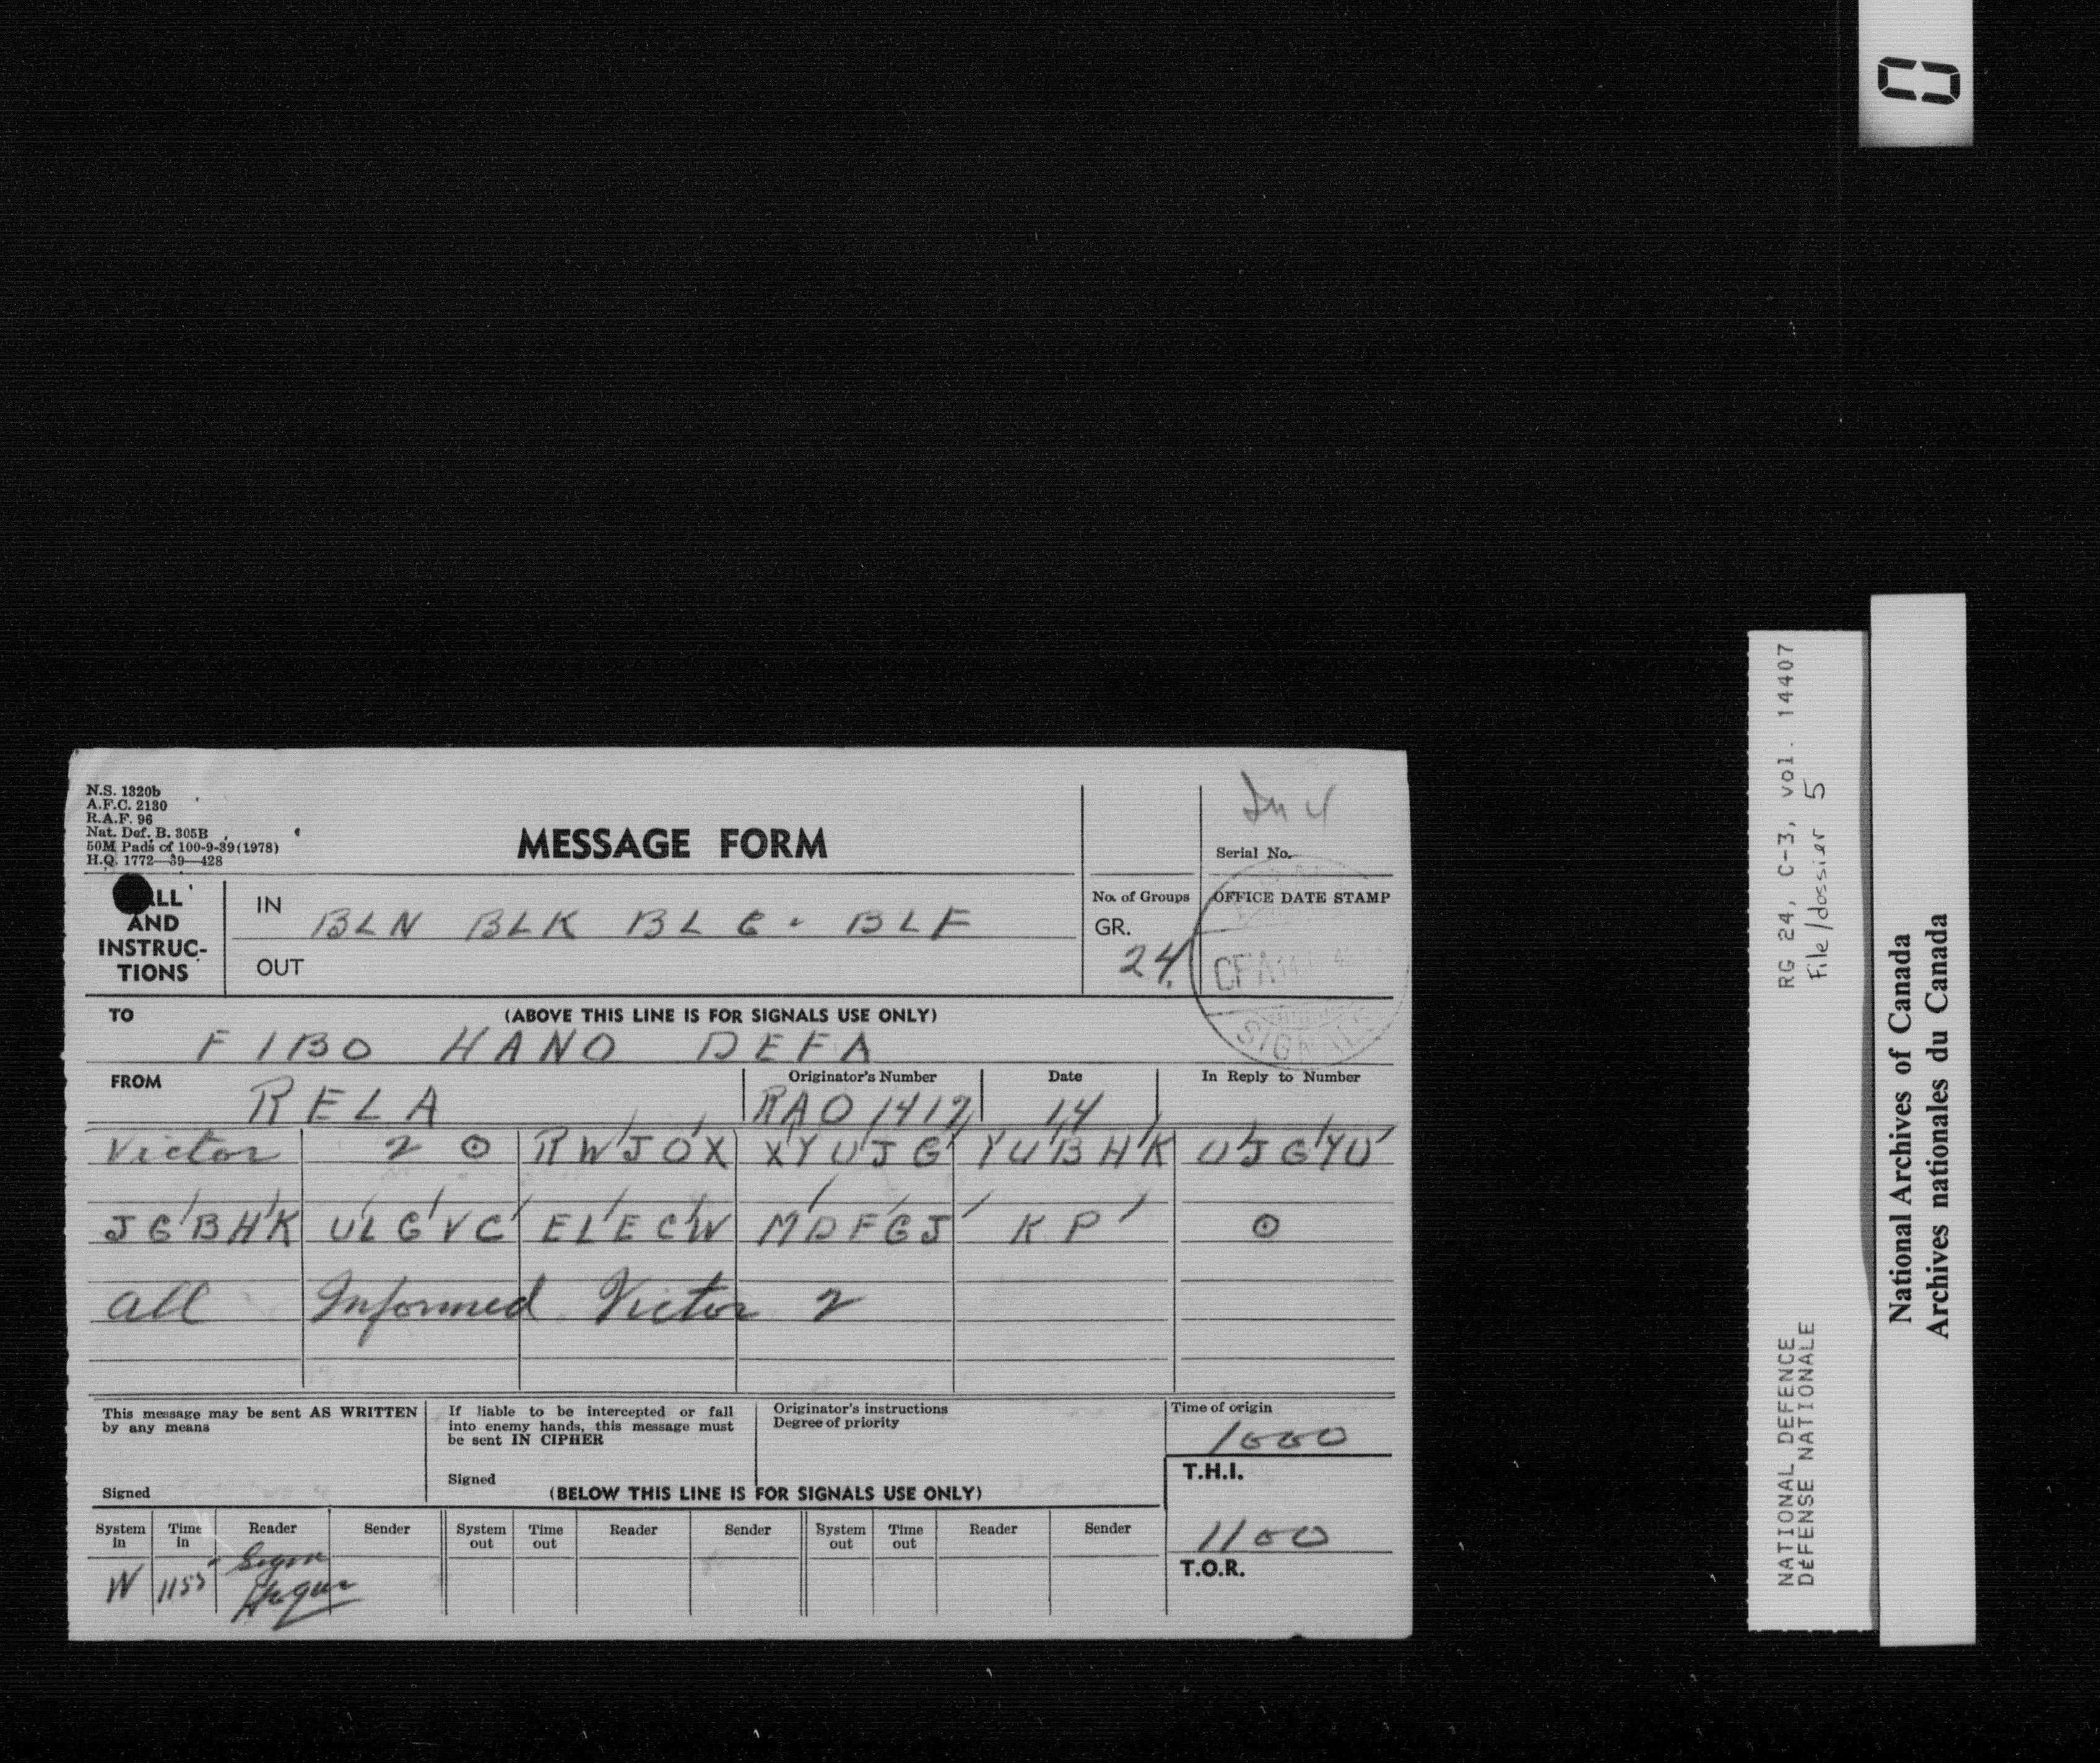 N.S. 1320b
A.F.C. 2130
R.A.F. 96
Nat. Def. B. 305B
50M Pads of 100-9-39 (1978)
H.Q. 1772—39—428
MESSAGE FORM
In 4
Serial No.
ALL AND INSTRUC-TIONS
IN BLN BLK BLG - BLF
OUT
No. of Groups
GR. 24
OFFICE DATE STAMP
CFA 14
SIGNALS
TO (ABOVE THIS LINE IS FOR SIGNALS USE ONLY)
FIBO HANO DEFA
FROM RELA
Originator's Number RAO 1417
Date 14
In Reply to Number
Victor 2 ⊙ RWJOX XYUJG YUBHK UJGYU
JGBHK ULGVC ELECW MDFGJ KP ⊙
all Informed Victor 2
This message may be sent AS WRITTEN
by any means
Signed
If liable to be intercepted or fall
into enemy hands, this message must
be sent IN CIPHER
Signed
Originator's instructions
Degree of priority
Time of origin
1000
T.H.I.
1100
T.O.R.
(BELOW THIS LINE IS FOR SIGNALS USE ONLY)
System in Time in Reader Sender System out Time out Reader Sender System out Time out Reader Sender
W 1155
0
RG 24, C-3, vol. 14407
File/dossier 5
NATIONAL DEFENCE
DÉFENSE NATIONALE
National Archives of Canada
Archives nationales du Canada